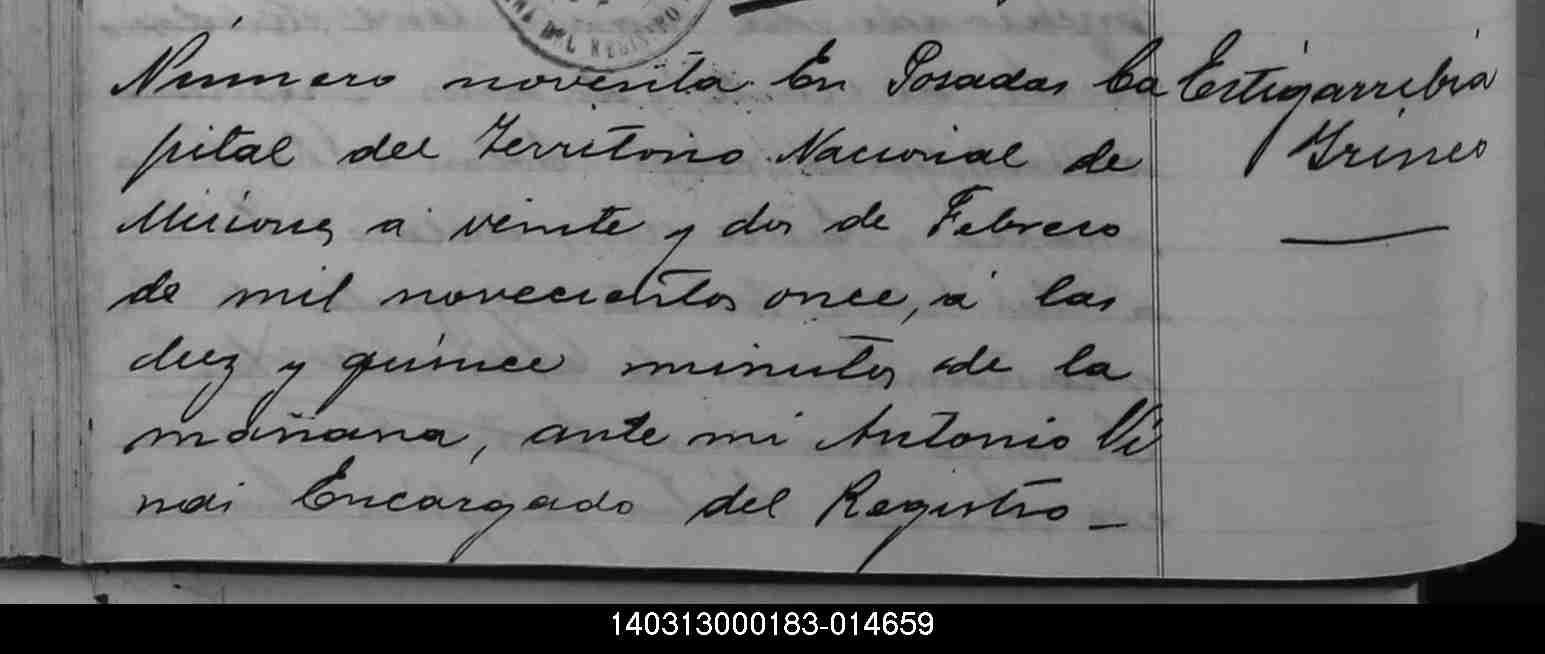 DEL REGISTRO
Número noventa En Posadas Ca
pital del Territorio Nacional de
Misiones á veinte y dos de Febrero
de mil novecientos once, á las
diez y quince minutos de la
mañana, ante mi Antonio Vi
nai Encargado del Registro –
Estigarribia
Irineo
140313000183-014659